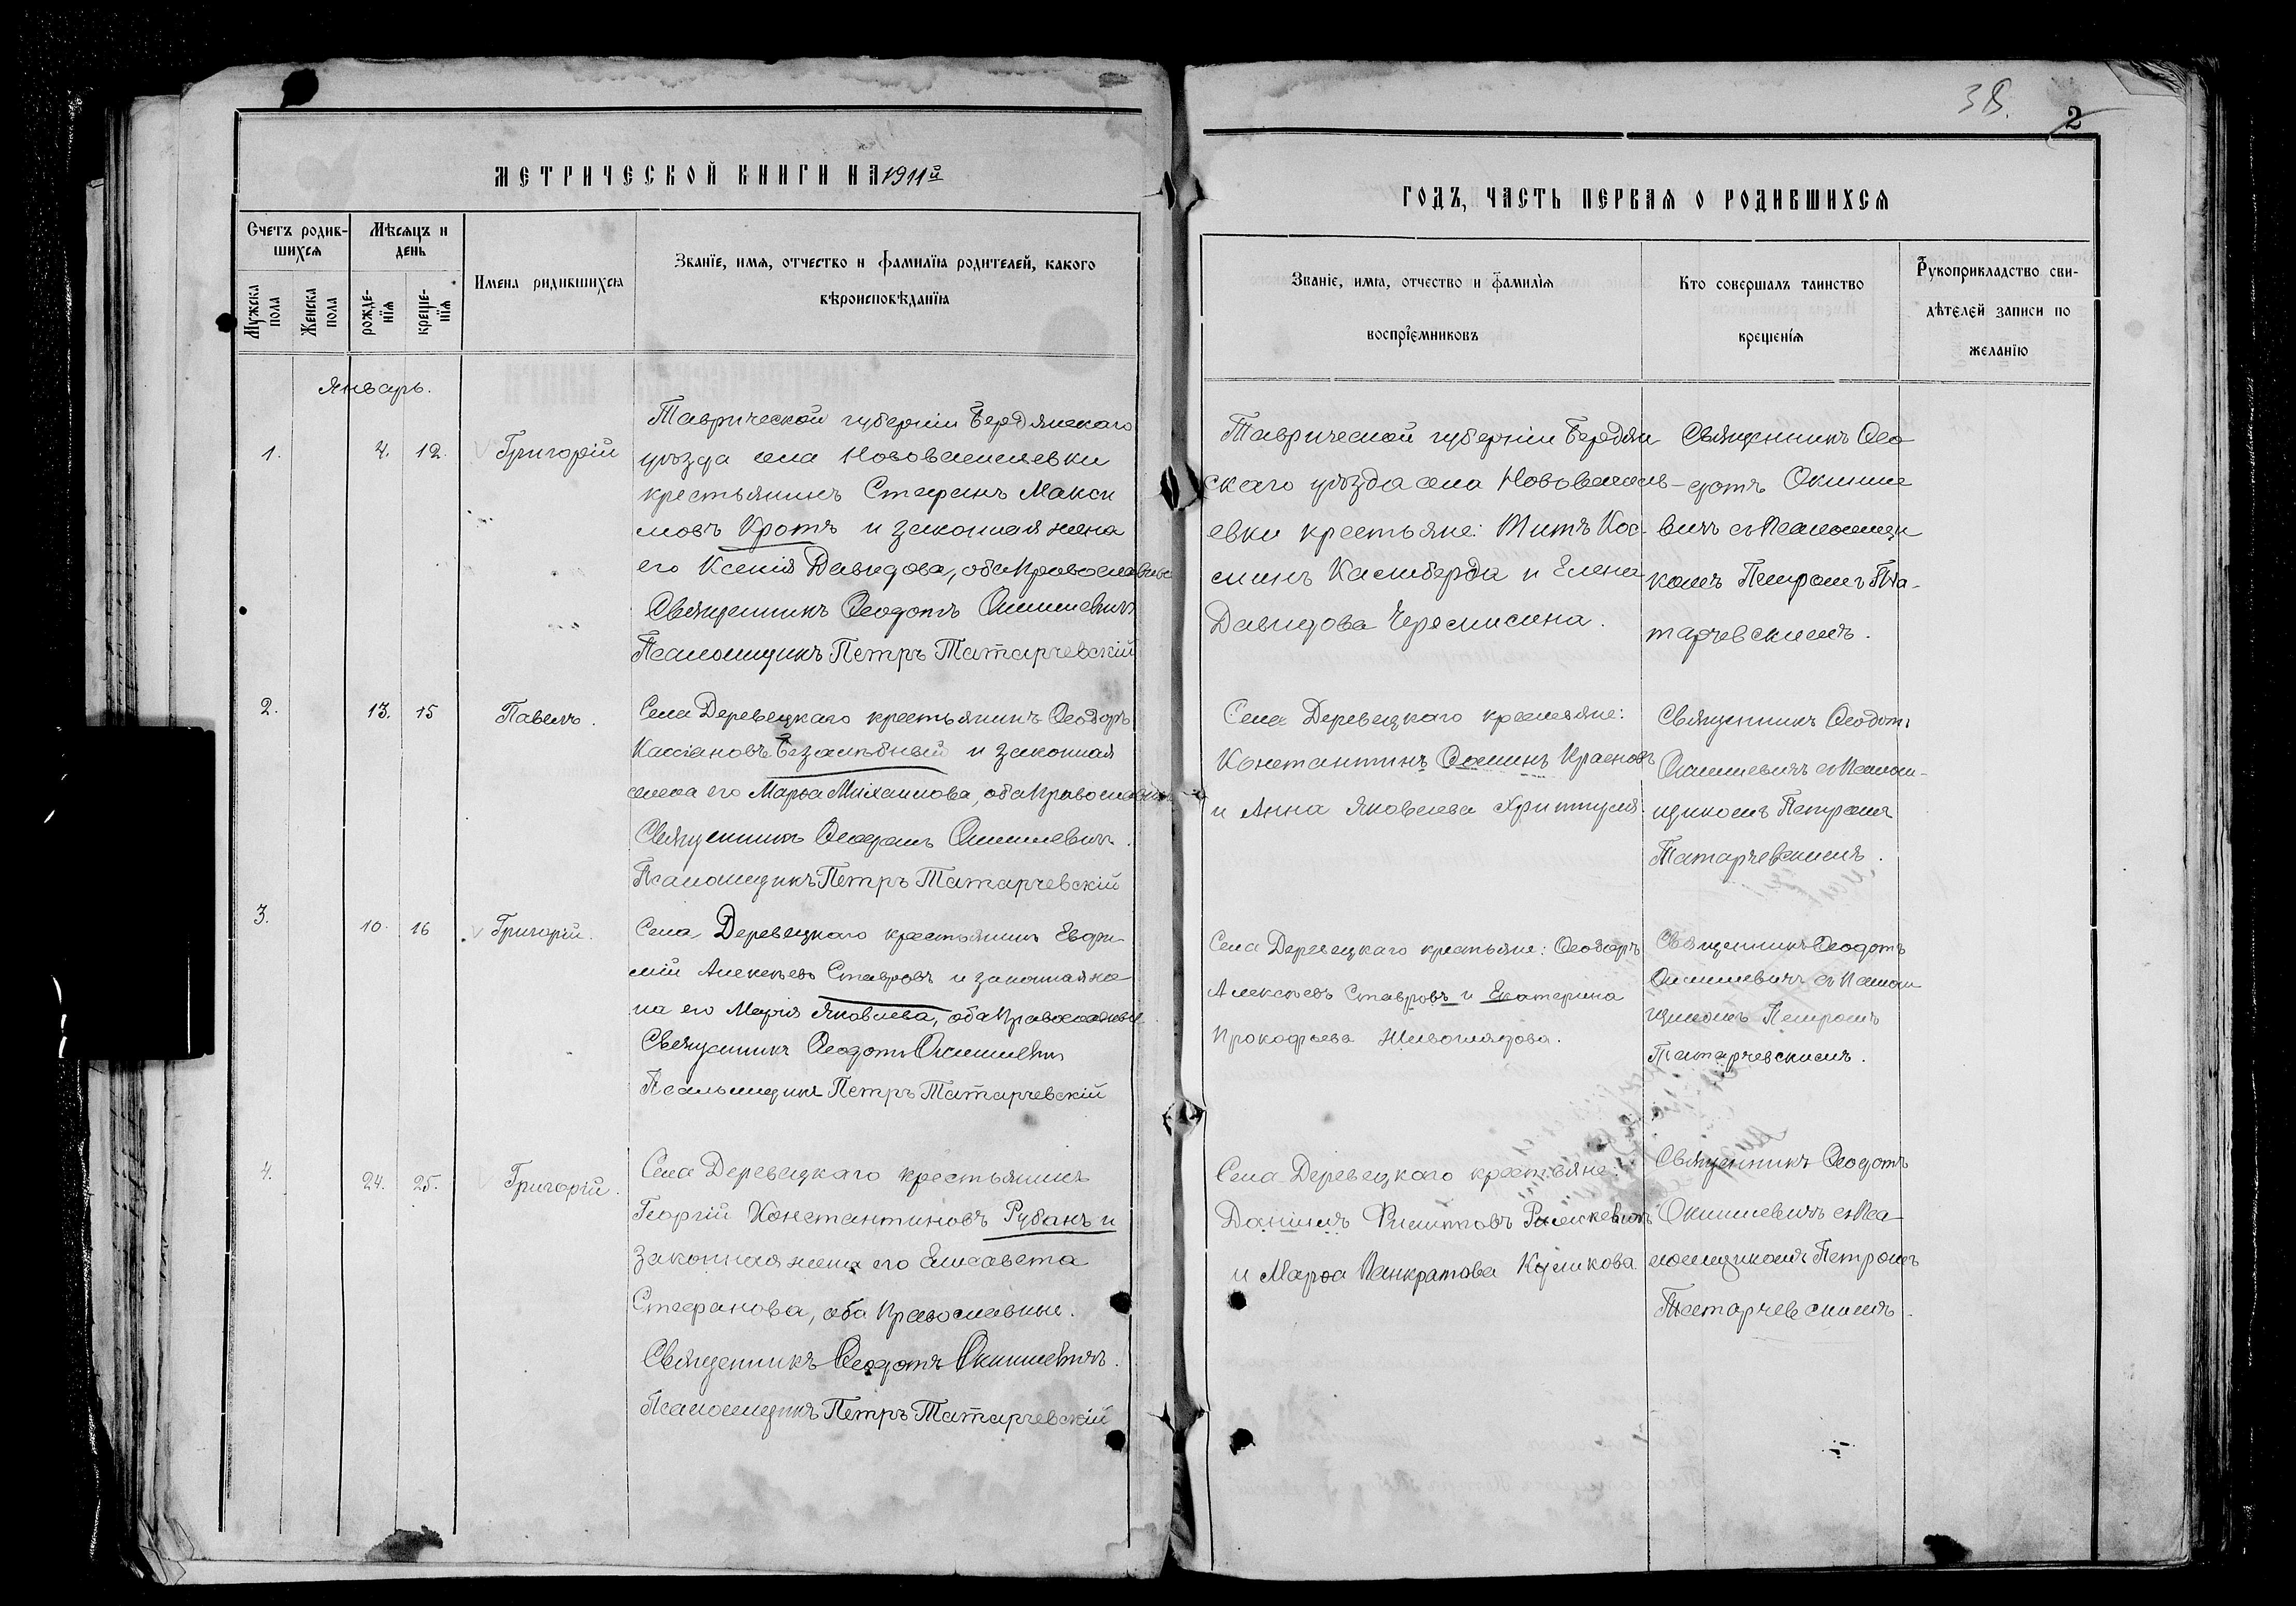 38.
2
МЕТРИЧЕСКОЙ КНИГИ НА 1911й
ГОДЪ, ЧАСТЬ ПЕРВАЯ О РОДИВШИХСЯ
Счетъ родив-
шихся
Мужска пола
Женска пола
Мѣсяцъ и
день
рожде-
нія
креще-
нія
Имена родившихся
Званіе, имя, отчество и фамиліа родителей, какого
вѣроисповѣданіа
Званіе, имя, отчество и фамилія
воспріемниковъ
Кто совершалъ таинство
крещенія
Рукоприкладство сви-
дѣтелей записи по
желанію
Январь.
1.
4. 12.
Григорій
Таврической губерніи Бердянскаго
уѣзда села Нововасилевки
крестьянинъ Стефанъ Макси
мовъ Кротъ и законная жена
его Ксенія Давидова, оба православные
Священникъ Ѳеодотъ Окишевичъ
Псаломщикъ Петръ Татарчевскій
Таврической губерніи Бердян
скаго уѣзда села Нововасил-
евки крестьяне: Титъ Кос-
минъ и Елена
Давидова
Священникъ Ѳео
дотъ Окише
вичъ съ Псаломщи
комъ Петромъ Та-
тарчевскимъ.
2.
13. 15
Павелъ.
Села Деревецкаго крестьянинъ Ѳеодоръ
Кассіановъ и законная
жена его Марѳа Михаилова, оба православные
Священникъ Ѳеодотъ Окишевичъ.
Псаломщикъ Петръ Татарчевскій
Села Деревецкаго крестьяне:
Константинъ Ѳоминъ Красновъ
и Анна Яковлева
Священникъ Ѳеодотъ
Окишевичъ съ Псалом-
щикомъ Петромъ
Татарчевскимъ.
3.
10. 16
Григорій.
Села Деревецкаго крестьянинъ Евфи
мій Алексѣевъ Ставровъ и законная же
на его Марія Яковлева, оба православные.
Священникъ Ѳеодотъ Окишевичъ
Псаломщикъ Петръ Татарчевскій
Села Деревецкаго крестьяне: Ѳеодоръ
Алексѣевъ Ставровъ и Екатерина
Прокофьева Живоглядова.
Священникъ Ѳеодотъ
Окишевичъ съ Псалом
щикомъ Петромъ
Татарчевскимъ.
4.
24. 25.
Григорій.
Села Деревецкаго крестьянинъ
Георгій Константиновъ Рубанъ и
законная жена его Елисавета
Стефанова, оба православные.
Священникъ Ѳеодотъ Окишевичъ.
Псаломщикъ Петръ Татарчевскій
Села Деревецкаго крестьяне:
Даніилъ
и Марѳа Панкратова Куликова.
Священникъ Ѳеодотъ
Окишевичъ съ Пса
ломщикомъ Петромъ
Татарчевскимъ.